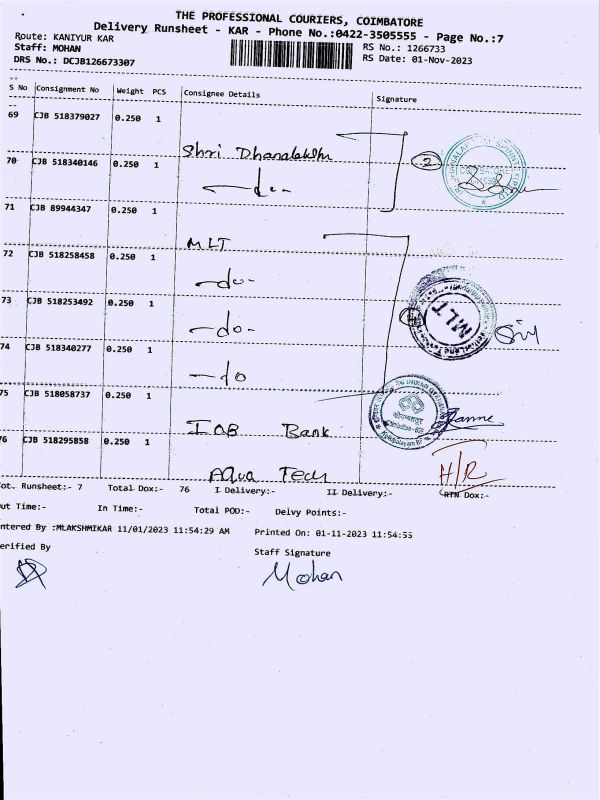 THE PROFESSIONAL COURIERS, COIMBATORE
Delivery Runsheet - KAR - Phone No.:0422-3505555 - Page No.:7
Route: KANIYUR KAR
Staff: MOHAN
DRS No.: DCJB126673307
RS No.: 1266733
RS Date: 01-Nov-2023
S No Consignment No Weight PCS Consignee Details Signature
69 CJB 518379027 0.250 1 Shri Dhanalakshmi
70 CJB 518340146 0.250 1 -do-
2
71 CJB 89944347 0.250 1 MLT
72 CJB 518258458 0.250 1 -do-
73 CJB 518253492 0.250 1 -do-
MLT
74 CJB 518340277 0.250 1 -do
75 CJB 518058737 0.250 1 IOB Bank
76 CJB 518295858 0.250 1 Aqua Tech
H/R
Tot. Runsheet:- 7 Total Dox:- 76 I Delivery:- II Delivery:- RTN Dox:-
Out Time:- In Time:- Total POD:- Delvy Points:-
Entered By :MLAKSHMIKAR 11/01/2023 11:54:29 AM Printed On: 01-11-2023 11:54:55
Verified By
Staff Signature
Mohan